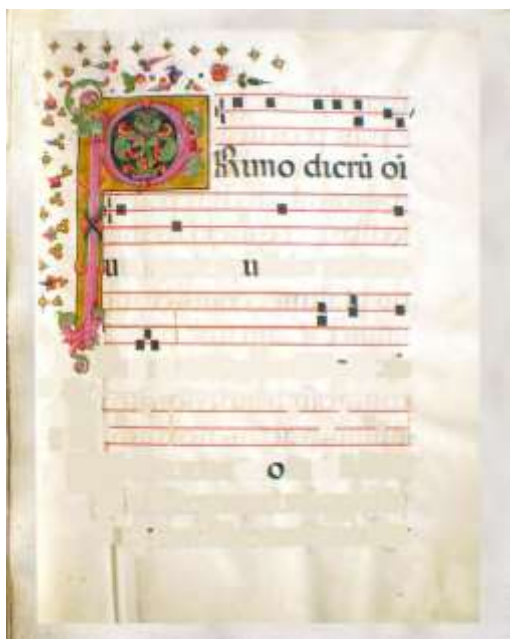 PRimo dierū oī
u u
o